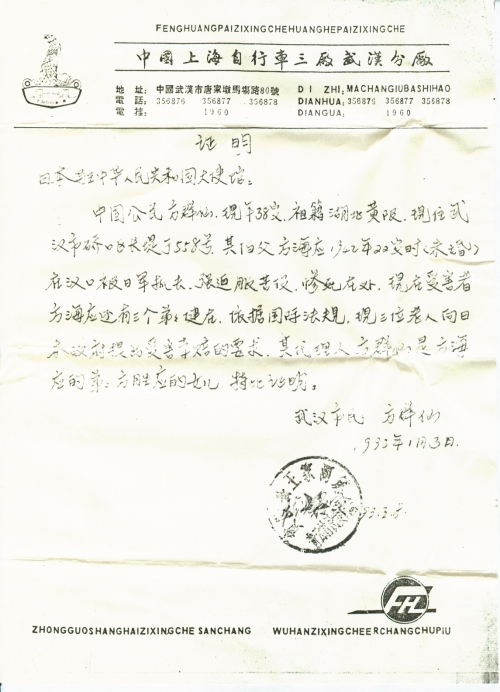 FENGHUANGPAIZIXINGCHEHUANGHEPAIZIXINGCHE
中國上海自行車三厰武漢分厰
地 址: 中國武漢市唐家墩馬場路80號 DI ZHI: MACHANGIUBASHIHAO
電 話: 356876 356877 356878 DIANHUA: 356876 356877 356878
電 掛: 1960 DIANGUA: 1960
证 明
日本驻中华人民共和国大使馆:
中国公民方群仙,现年38岁,祖籍湖北黄陂,现住武
汉市硚口区长堤丁558号,其伯父方海应1942年22岁时(未婚)
在汉口被日军抓去,强迫服苦役,惨死在外,现在受害者
方海应还有三个弟弟健在,依据国际法规,现三位老人向日
本政府提出受害索赔的要求,其代理人方群仙是方海
应的弟弟方胜应的女儿,特此证明。
武汉市民 方群仙
1993年1月3日.
93.3.8.
FH
ZHONGGUOSHANGHAIZIXINGCHE SANCHANG WUHANZIXINGCHEERCHANGCHUPIU